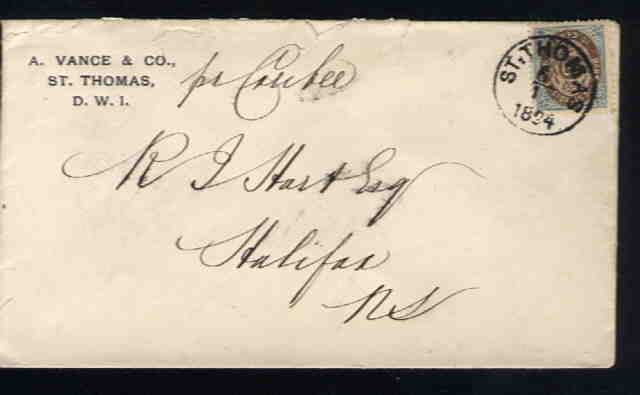 A. VANCE & CO.,
ST. THOMAS,
D. W. I.
pr Caribee
ST. THOMAS
6
1
1894
R J Hart Esq
Halifax
NS